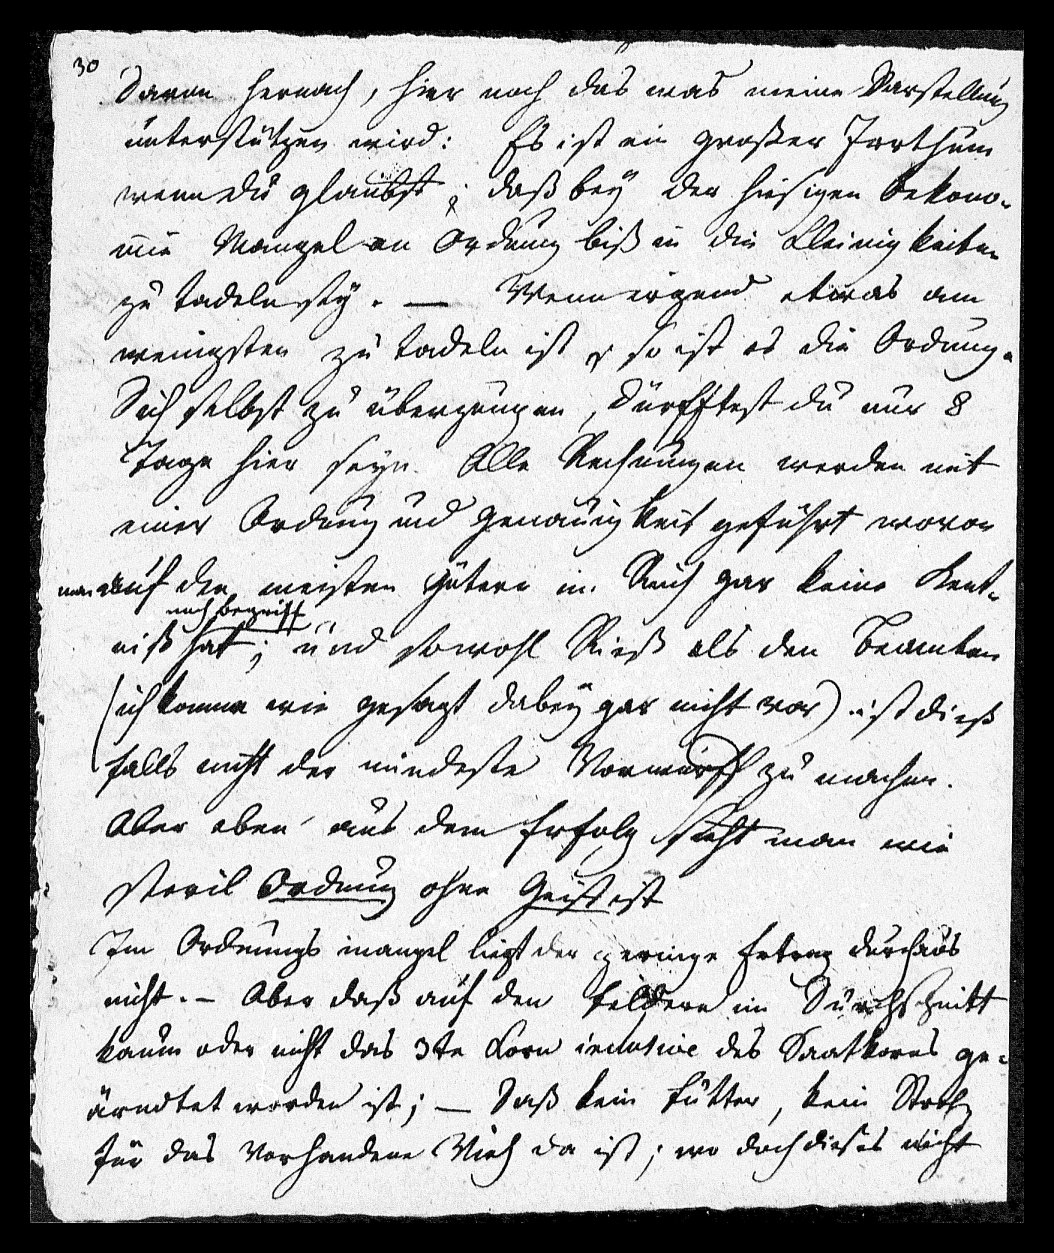 30
Davon hernach, hier noch das was meine Darstellung
unterstützen wird: Es ist ein großer Irrthum
wenn du glaubst, daß bey der hiesigen Oekono-
mie Mangel an Ordnung biß in die Kleinigkeiten
zu tadeln sey. — Wenn irgend etwas am
wenigsten zu tadeln ist, so ist es die Ordnung.
Dich selbst zu überzeugen, dürfftest du nur 8
Tage hier seyn. Alle Rechnungen werden mit
einer Ordnung und Genauigkeit geführt wovon
man auf den meisten Gütern im Reich gar keine Kent-
noch Begriff
niß hat; und sowohl Rieß als den Beamten
(ich komme wie gesagt dabey gar nicht vor) ist dieß
falls nicht der mindeste Vorwurff zu machen.
Aber eben aus dem Erfolg sieht man wie
steril Ordnung ohne Geist ist
Im Ordnungsmangel liegt der geringe Ertrag durchaus
nicht. – Aber daß auf den Feldern im Durchschnitt
kaum oder nicht das 3te Korn inclusive des Saatkorns ge-
ärndtet worden ist; — Daß kein Futter, kein Stroh
für das vorhandene Vieh da ist; wo doch dieses nicht